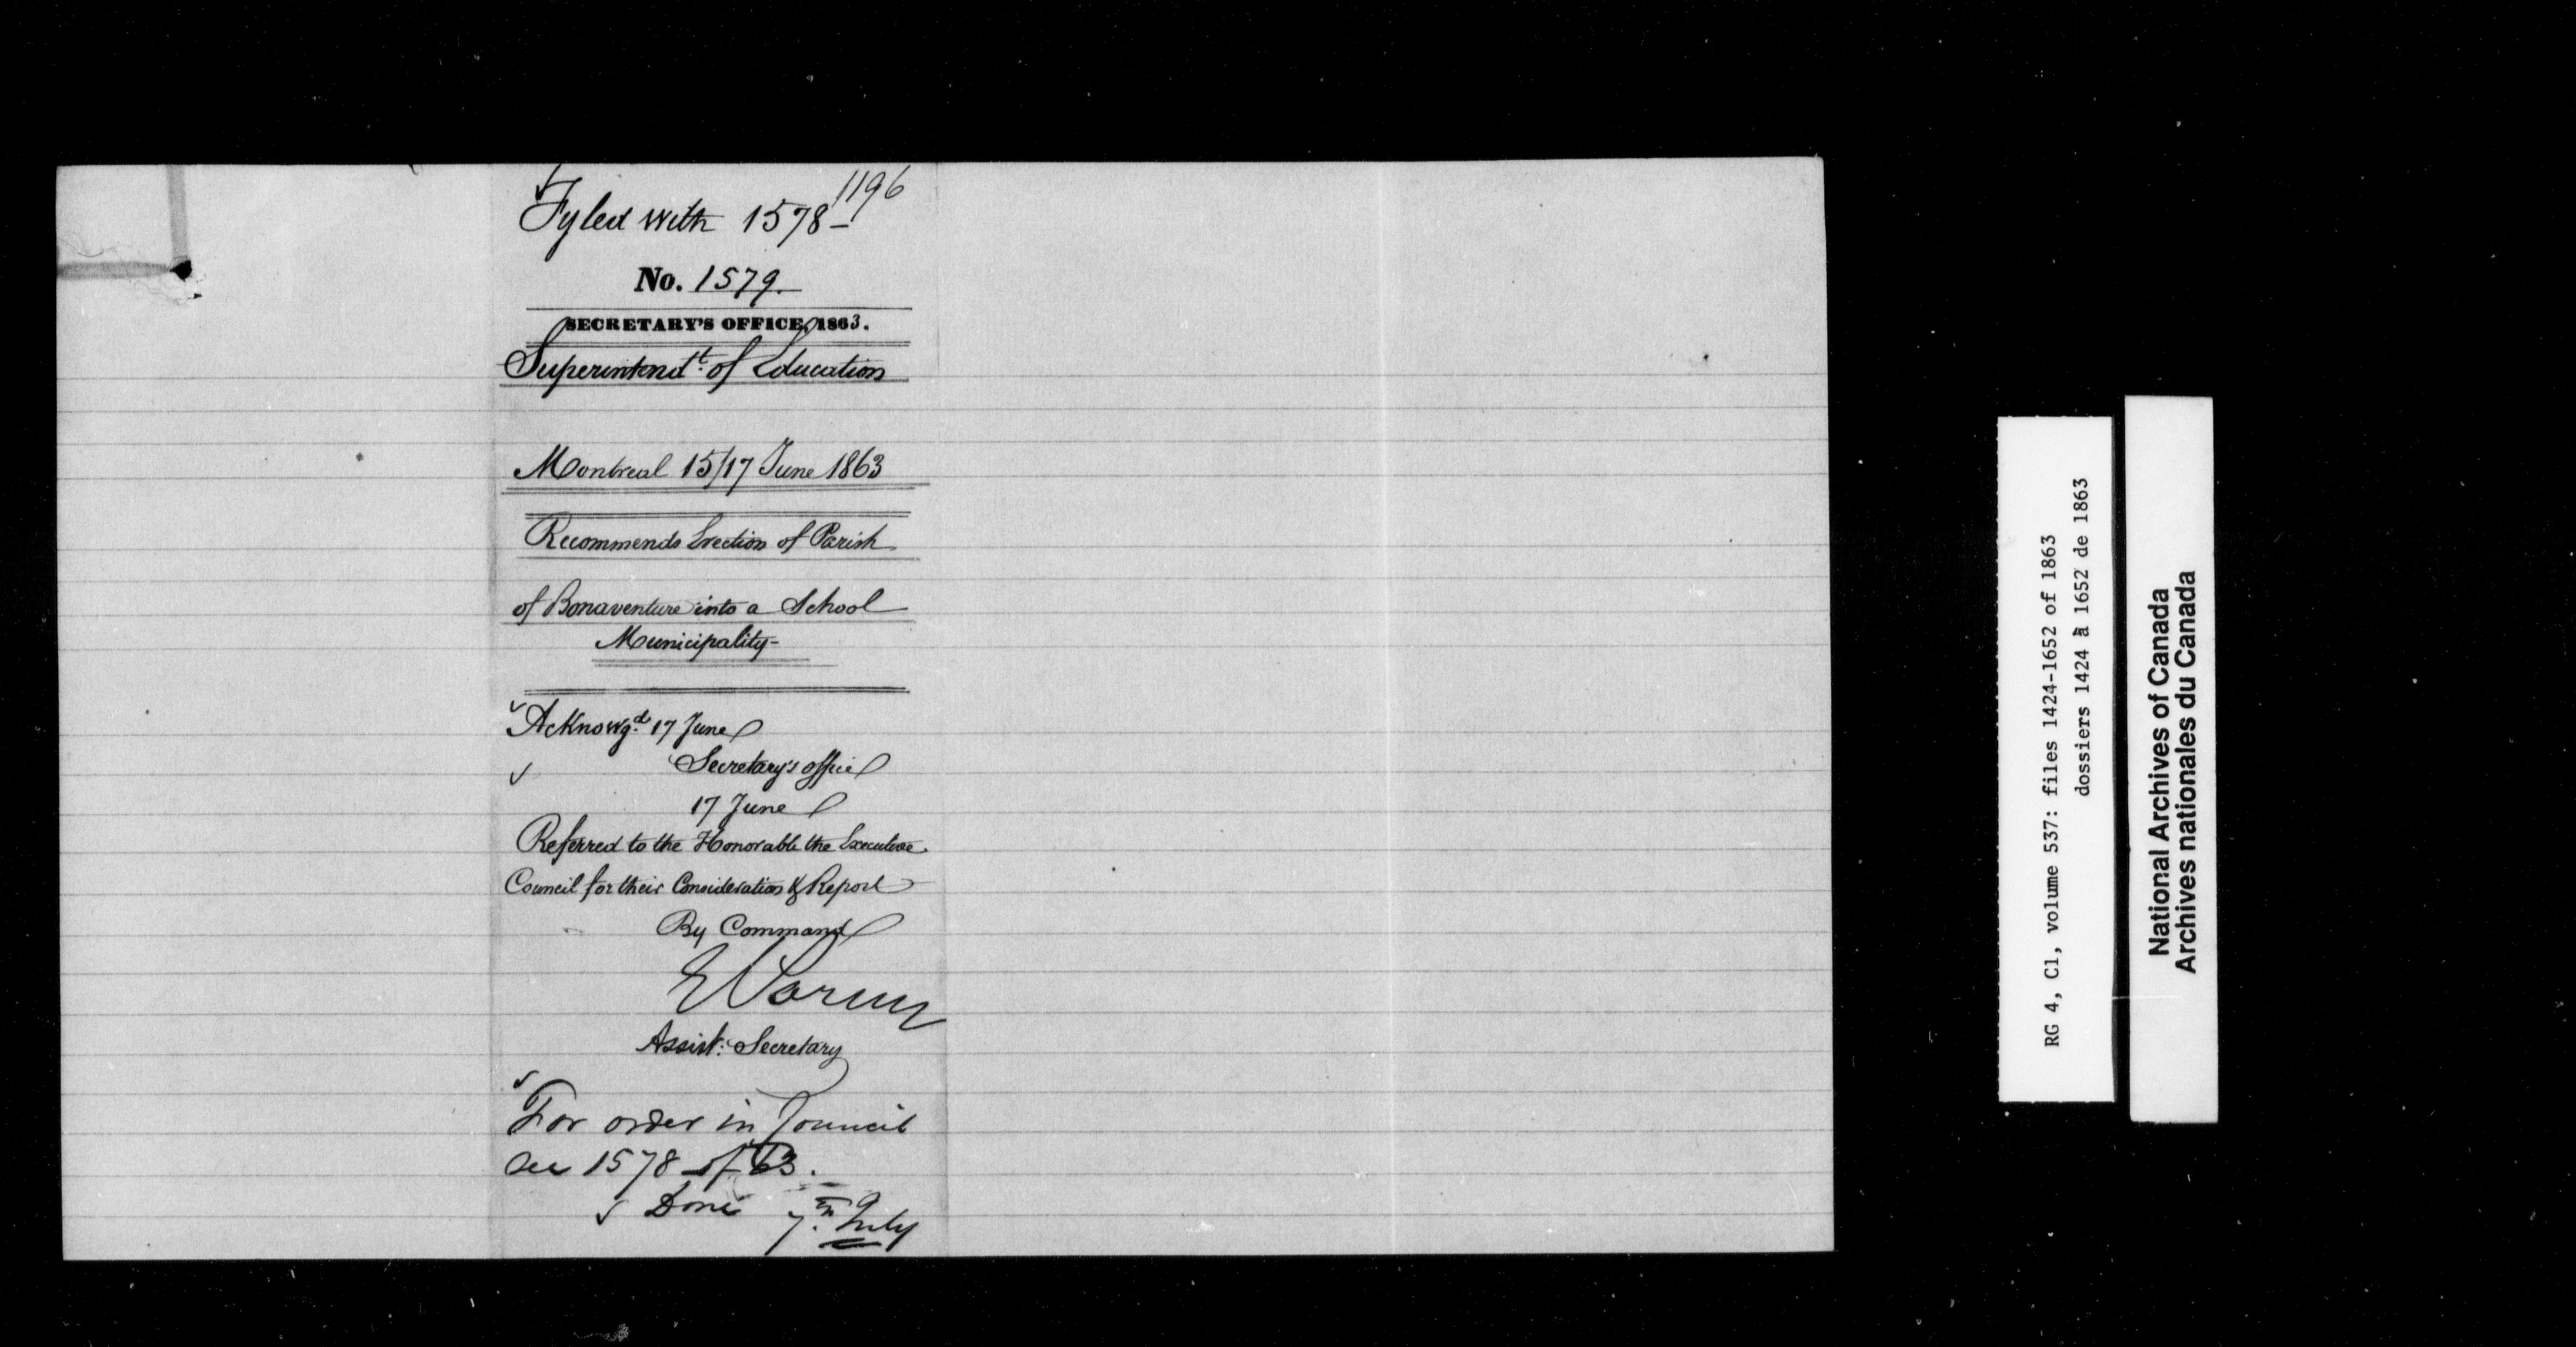 1196
Fyled with 1578 –
No. 1579.
SECRETARY'S OFFICE, 1863.
Superintendt. of Education
Montreal 15/17 June 1863
Recommends Erection of Parish
of Bonaventure into a School
Municipality –
Acknowgd. 17 June
Secretary's office
17 June
Referred to the Honorable the Executive
Council for their Consideration & Report
By Command
E Parent
Assist: Secretary
For order in Council
see 1578 of 63.
Done 7th July
RG 4, C1, volume 537: files 1424-1652 of 1863
dossiers 1424 à 1652 de 1863
National Archives of Canada
Archives nationales du Canada